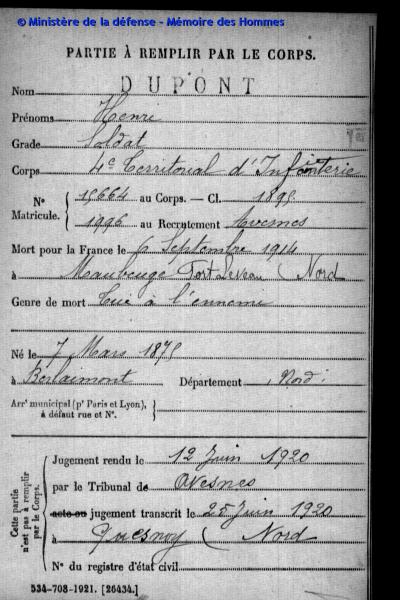 © Ministère de la défense - Mémoire des Hommes
PARTIE À REMPLIR PAR LE CORPS.
Nom DUPONT
Prénoms Henri
Grade Soldat
Corps 4e Territorial d'Infanterie
N° Matricule. { 15664 au Corps. — Cl. 1895
1996 au Recrutement Avesnes
Mort pour la France le 6 Septembre 1914
à Maubeuge Fort Leveau (Nord
Genre de mort Tué à l'ennemi
Né le 7 Mars 1875
à Berlaimont Département Nord
Arrt municipal (pr Paris et Lyon), à défaut rue et N°. }
Cette partie n'est pas à remplir par le Corps.
Jugement rendu le 12 Juin 1920
par le Tribunal de Avesnes
acte ou jugement transcrit le 25 Juin 1920
à Quesnoy (Nord
N° du registre d'état civil
534-708-1921. [26434.]